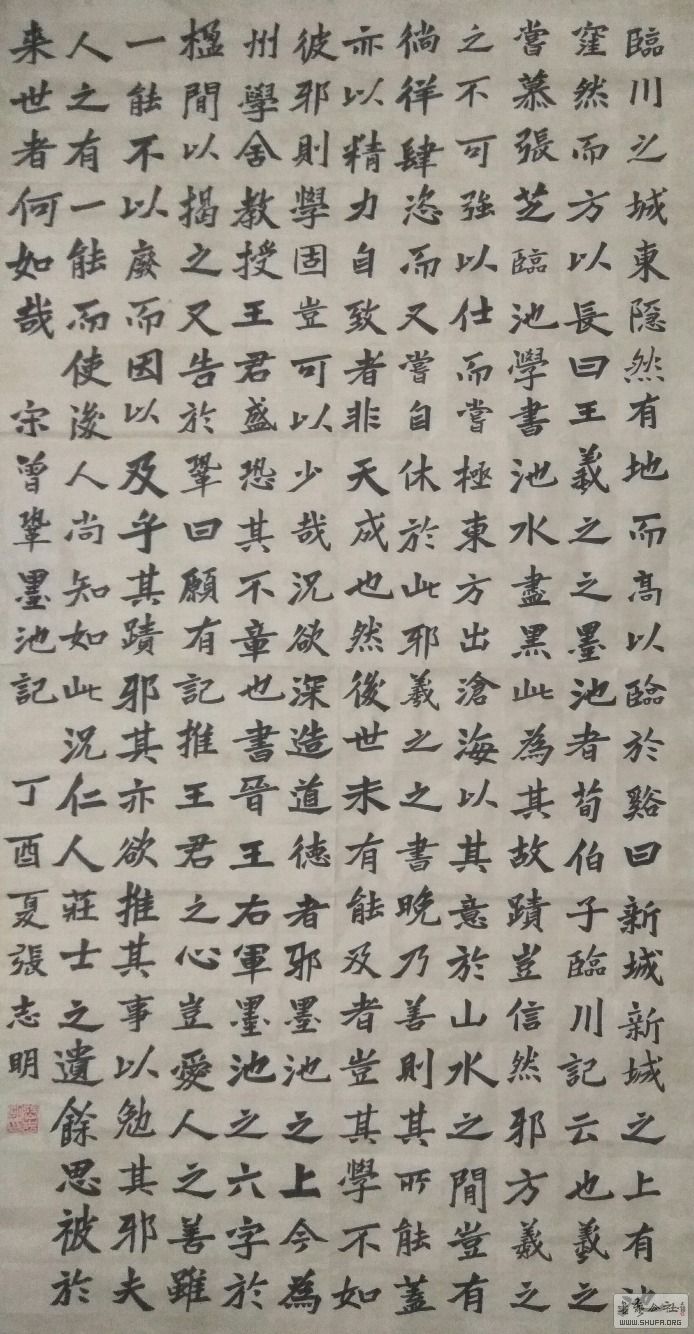 臨川之城東隱然有地而高以臨於谿曰新城新城之上有
窪然而方以長曰王羲之之墨池者荀伯子臨川記云也羲之
嘗慕張芝臨池學書池水盡黑此為其故蹟豈信然邪方羲之
之不可強以仕而嘗極東方出滄海以其意於山水之間豈有
徜徉肆恣而又嘗自休於此邪羲之之書晚乃善則其所能蓋
亦以精力自致者非天成也然後世未有能及者豈其學不如
彼邪則學固豈可以少哉況欲深造道德者邪墨池之上今為
州學舍教授王君盛恐其不章也書晉王右軍墨池之六字於
楹間以揭之又告於鞏曰願有記推王君之心豈愛人之善雖
一能不以廢而因以及乎其蹟邪其亦欲推其事以勉其邪夫
人之有一能而使後人尚知如此況仁人莊士之遺餘思被於
来世者何如哉 宋曾鞏墨池記 丁酉夏張志明
WWW.SHUFA.ORG